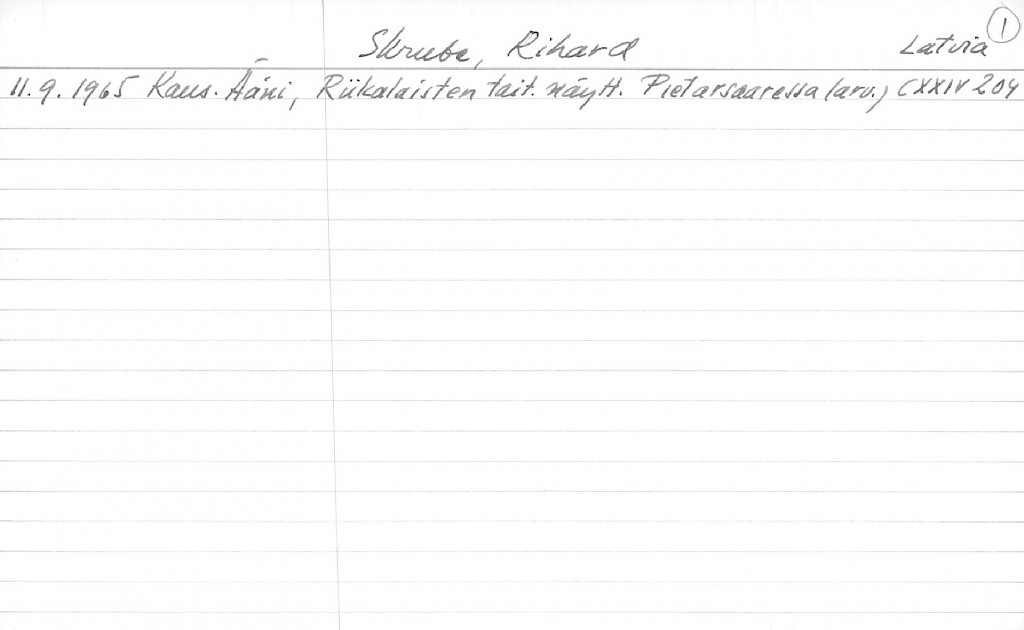 Skrube, Rihard Latvia 1
11.9.1965 Kans. Ääni, Riikalaisten tait. näytt. Pietarsaaressa (arv.) CXXIV 204